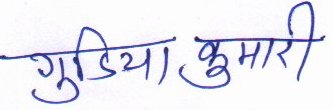 गुडिया कुमारी